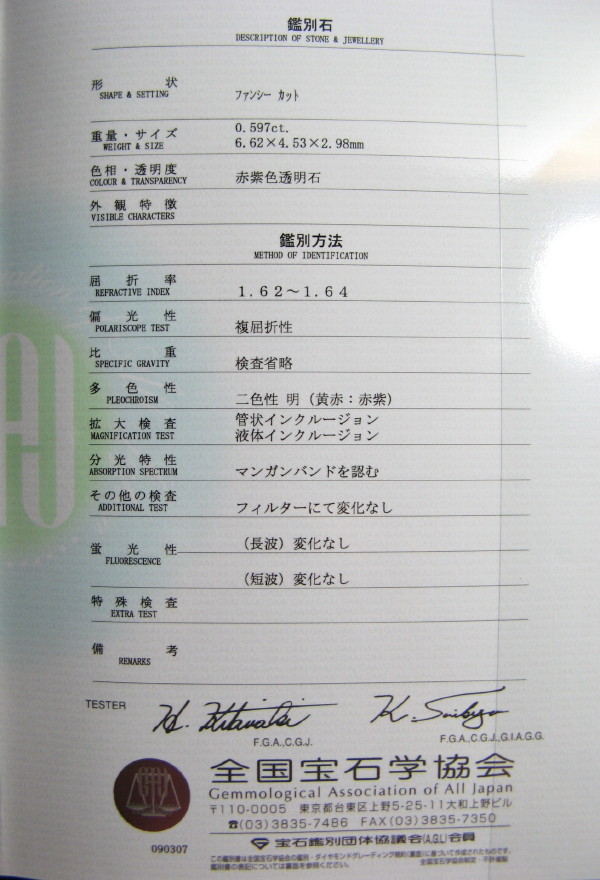 鑑別石
DESCRIPTION OF STONE & JEWELLERY
形状
SHAPE & SETTING
ファンシー カット
重量・サイズ
WEIGHT & SIZE
0.597ct.
6.62×4.53×2.98mm
色相・透明度
COLOUR & TRANSPARENCY
赤紫色透明石
外観特徴
VISIBLE CHARACTERS
鑑別方法
METHOD OF IDENTIFICATION
屈折率
REFRACTIVE INDEX
1.62～1.64
偏光性
POLARISCOPE TEST
複屈折性
比重
SPECIFIC GRAVITY
検査省略
多色性
PLEOCHROISM
二色性 明（黄赤：赤紫）
拡大検査
MAGNIFICATION TEST
管状インクルージョン
液体インクルージョン
分光特性
ABSORPTION SPECTRUM
マンガンバンドを認む
その他の検査
ADDITIONAL TEST
フィルターにて変化なし
蛍光性
FLUORESCENCE
（長波）変化なし
（短波）変化なし
特殊検査
EXTRA TEST
備考
REMARKS
TESTER
F.G.A.,C.G.J.
F.G.A.,C.G.J.,G.I.A.G.G.
全国宝石学協会
Gemmological Association of All Japan
〒110-0005 東京都台東区上野5-25-11大和上野ビル
☎(03)3835-7486 FAX(03)3835-7350
宝石鑑別団体協議会(A.G.L)会員
090307
この鑑別書は全国宝石学協会の鑑別・ダイヤモンドグレーディング規約(裏面)に基づいて作成されたものです。
鑑別書の表記については裏面を参照ください。
全国宝石学協会制定・不許複製